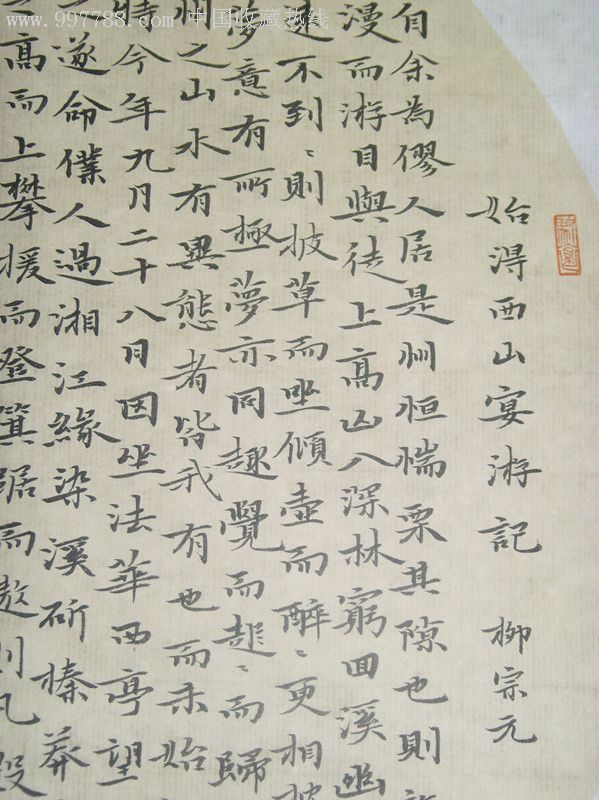 www.997788.com 中国收藏热线
始得西山宴游記 柳宗元
自余為僇人居是州恒惴栗其隙也則
漫而游目與徒上高山入深林窮回溪幽
遠不到〻則披草而坐傾壺而醉〻更相
夢意有所極夢亦同趣覺而起〻而歸
州之山水有異態者皆我有也而未始
特今年九月二十八日因坐法華西亭望
遂命僕人過湘江緣染溪斫榛莽
高而上攀援而登箕踞而遨則凡